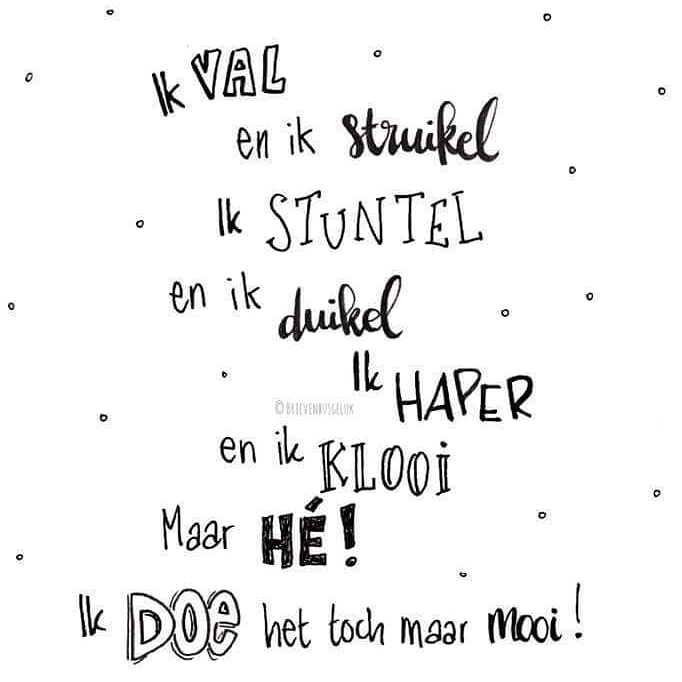 Ik VAL
en ik struikel
Ik STUNTEL
en ik duikel
Ik HAPER
© BRIEVENBUSGELUK
en ik KLOOI
Maar HÉ!
Ik DOE het toch maar mooi!